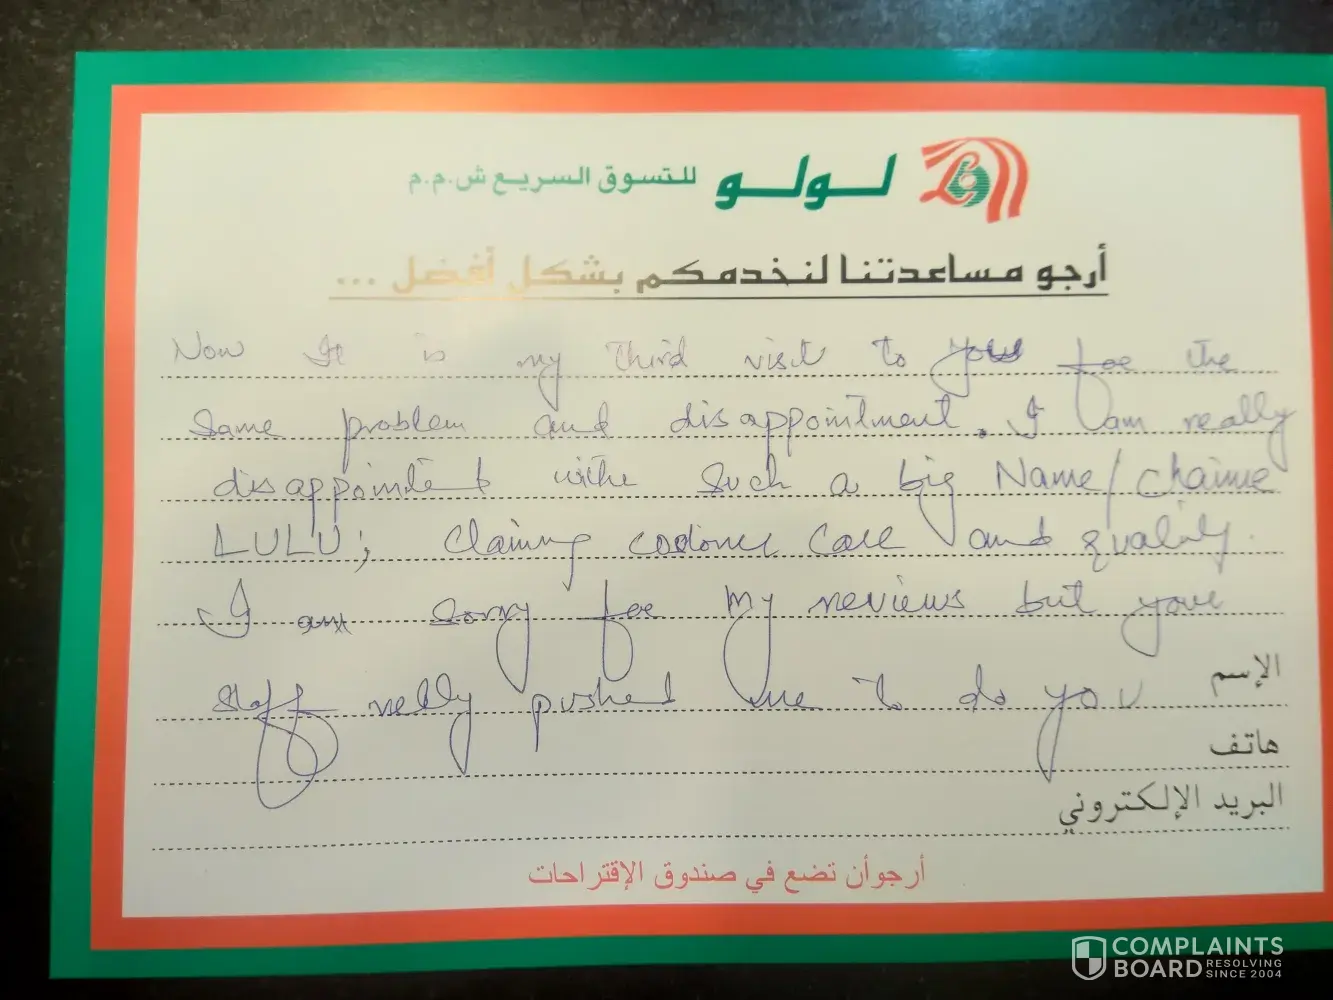 لولو للتسوق السريع ش.م.م
أرجو مساعدتنا لنخدمكم بشكل أفضل ...
Now It is my third visit to your for the
same problem and disappointment. I am really
disappointed withe such a big Name/chaine
LULU; claiming care and quality.
I am sorry for my reviews but your
staff pushed me to do you
الإسم
هاتف
البريد الإلكتروني
أرجوأن تضع في صندوق الإقتراحات
COMPLAINTS
BOARD RESOLVING SINCE 2004